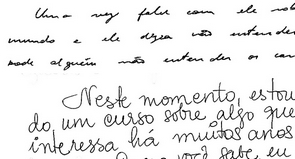 Uma vez falei com ele sob
mundo e ele dizia não entender
pode alguém não entender os car
Neste momento, estou
do um curso sobre algo que
interessa há muitos anos
você sabe, eu